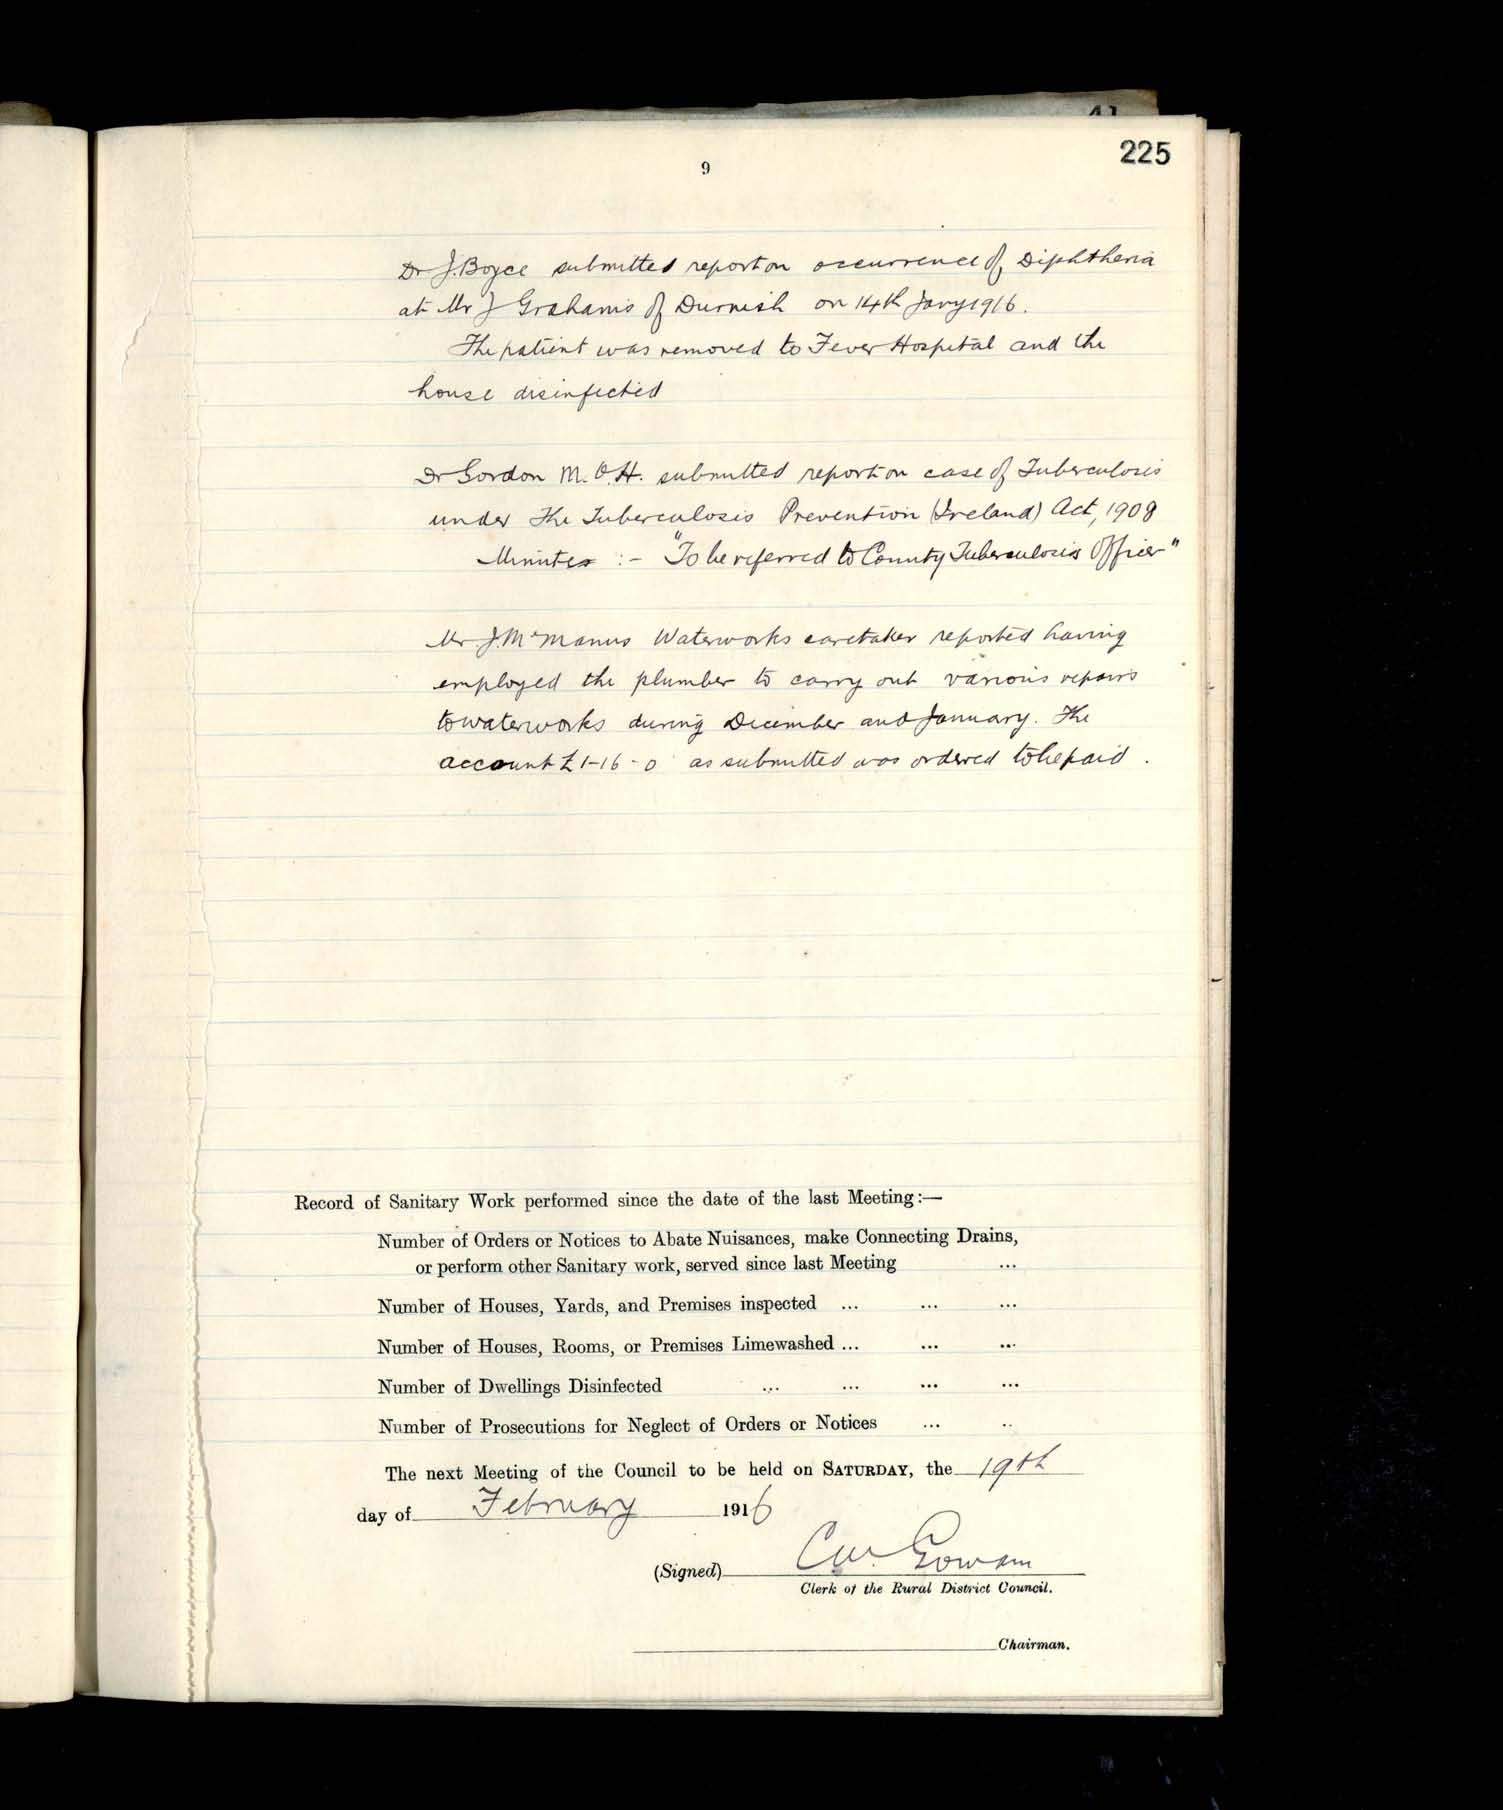 225
9
Dr J. Boyce submitted report on occurrence of Diphtheria
at Mr J Graham's of Durnish on 14th Jany 1916.
The patient was removed to Fever Hospital and the
house disinfected
Dr Gordon M.O.H. submitted report on case of Tuberculosis
under the Tuberculosis Prevention (Ireland) Act, 1908
Minutes :- "To be referred to County Tuberculosis Officer"
Mr J. McManus Waterworks caretaker reported having
employed the plumber to carry out various repairs
to waterworks during December and January. The
account £1-16-0 as submitted was ordered to be paid.
Record of Sanitary Work performed since the date of the last Meeting:—
Number of Orders or Notices to Abate Nuisances, make Connecting Drains,
or perform other Sanitary work, served since last Meeting ...
Number of Houses, Yards, and Premises inspected ... ... ...
Number of Houses, Rooms, or Premises Limewashed ... ... ...
Number of Dwellings Disinfected ... ... ... ...
Number of Prosecutions for Neglect of Orders or Notices ... ..
The next Meeting of the Council to be held on SATURDAY, the 19th
day of February 1916
(Signed) CW Gowan
Clerk of the Rural District Council.
Chairman.